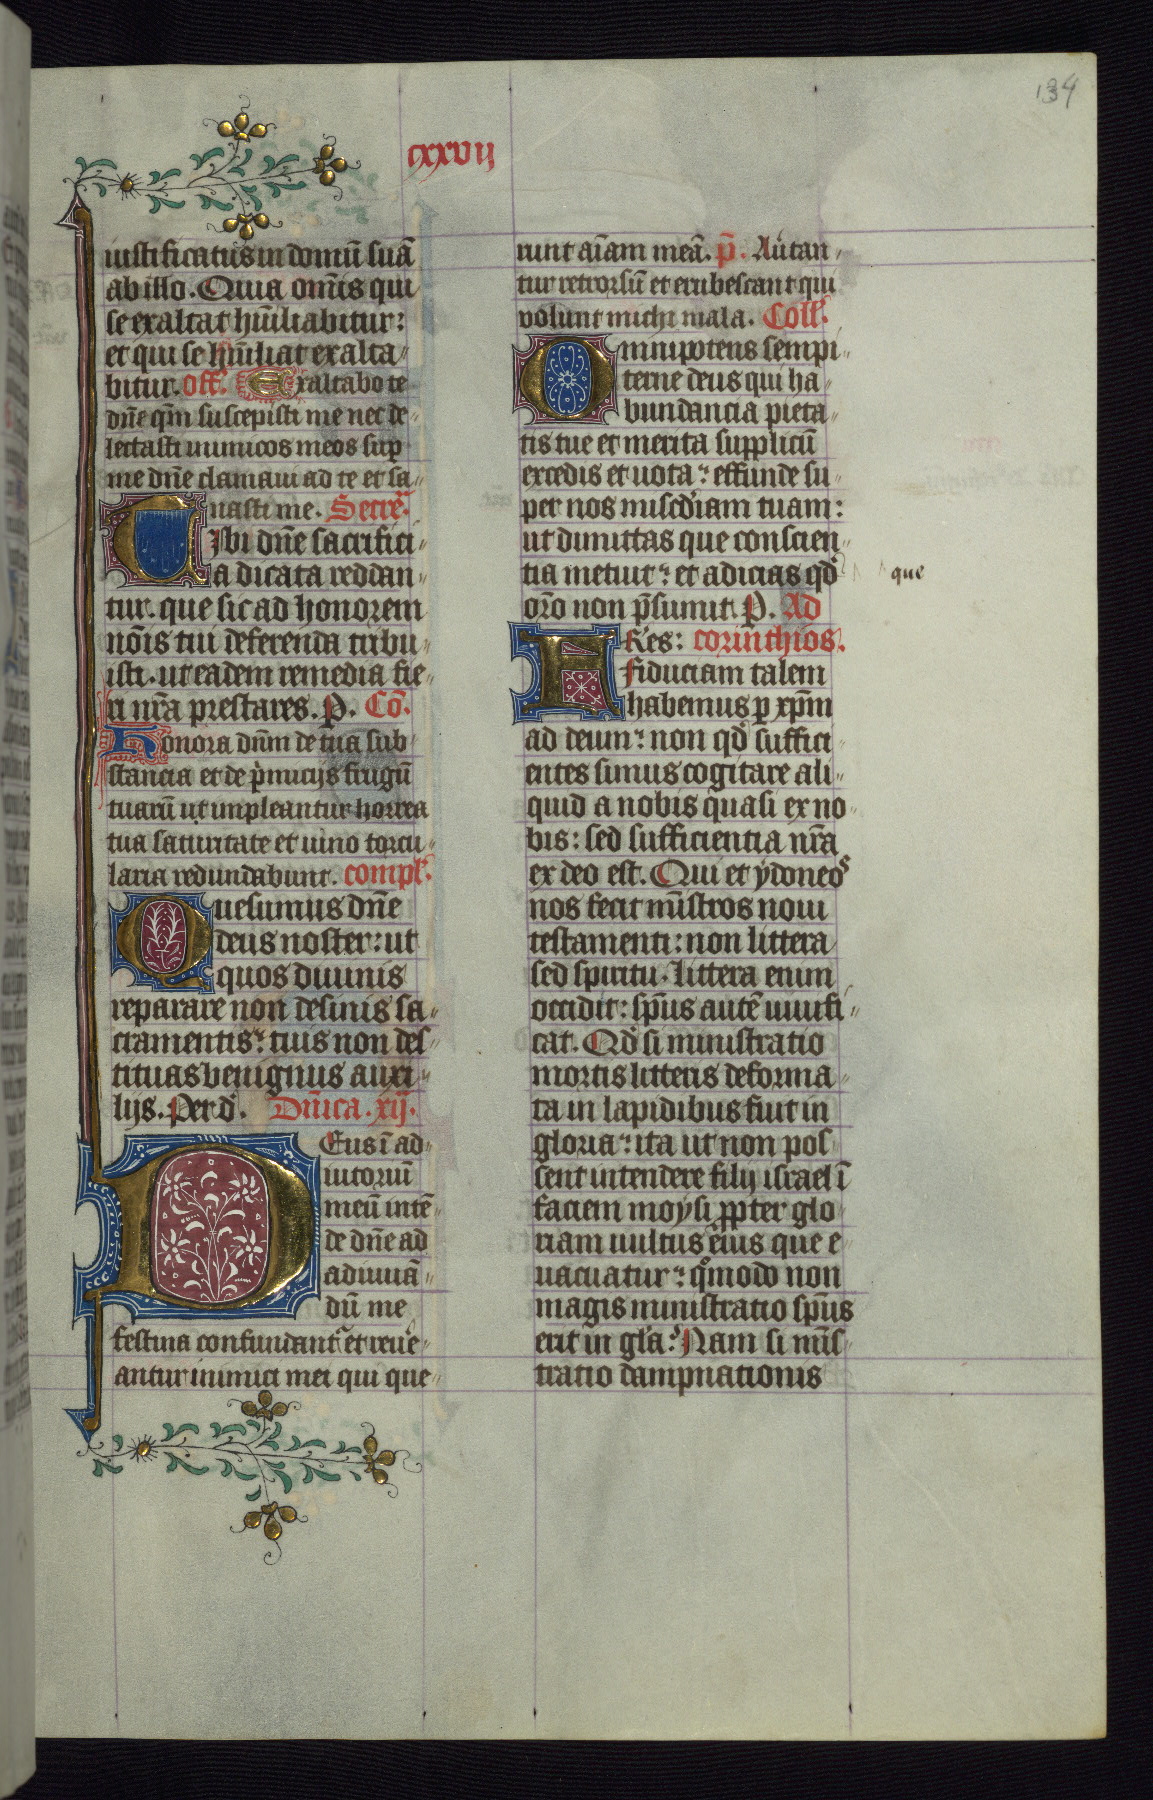 134
cxxvij
iustificatus in domū suā
ab illo. Quia om̄is qui
se exaltat hūiliabitur:
et qui se hūiliat exalta
bitur. off. Exaltabo te
dn̄e qm̄ suscepisti me nec de
lectasti inimicos meos sup
me dn̄e clamaui ad te et sa
nasti me. Secre
Tibi dn̄e sacrifici
a dicata reddan
tur. que sic ad honorem
nōis tui deferenda tribu
isti. ut eadem remedia fie
ri nr̄a prestares. P. Cō.
Honora dn̄m de tua sub
stancia et de p̄miciis frugū
tuarū ut impleantur horrea
tua saturitate et uino torcu
laria redundabunt. compl.
Quesumus dn̄e
deus noster: ut
quos diuinis
reparare non desinis sa
cramentis: tuis non des
tituas benignus auxi
lijs. Per d. Dn̄ica. xij.
Deus ī ad
iutoriū
meū intē
de dn̄e ad
adiuuā
dū me
festina confundant et reue
antur inimici mei qui que
runt aīam meā. p̄. Auertan
tur retrorsū et erubescant qui
volunt michi mala. Coll.
Omnipotens sempi
terne deus qui ha
bundancia pieta
tis tue et merita supplicū
excedis et uota: effunde su
per nos misc̄diam tuam:
ut dimittas que conscien
tia metuit: et adicias qd
que
orō non p̄sumit. P. Ad
FRes: corinthios.
fiduciam talem
habemus p xp̄m
ad deum: non qd suffici
entes simus cogitare ali
quid a nobis quasi ex no
bis: sed sufficientia nr̄a
ex deo est. Qui et ydoneos
nos fecit mīstros noui
testamenti: non littera
sed spiritu. littera enim
occidit: sp̄us autē uiuifi
cat. Qd si ministratio
mortis litteris deforma
ta in lapidibus fuit in
gloria: ita ut non pos
sent intendere filij israel ī
faciem moysi ppter glo
riam uultus eius que e
uacuatur: qmodo non
magis ministratio sp̄us
erit in gl̄a: Nam si mīs
tratio dampnationis